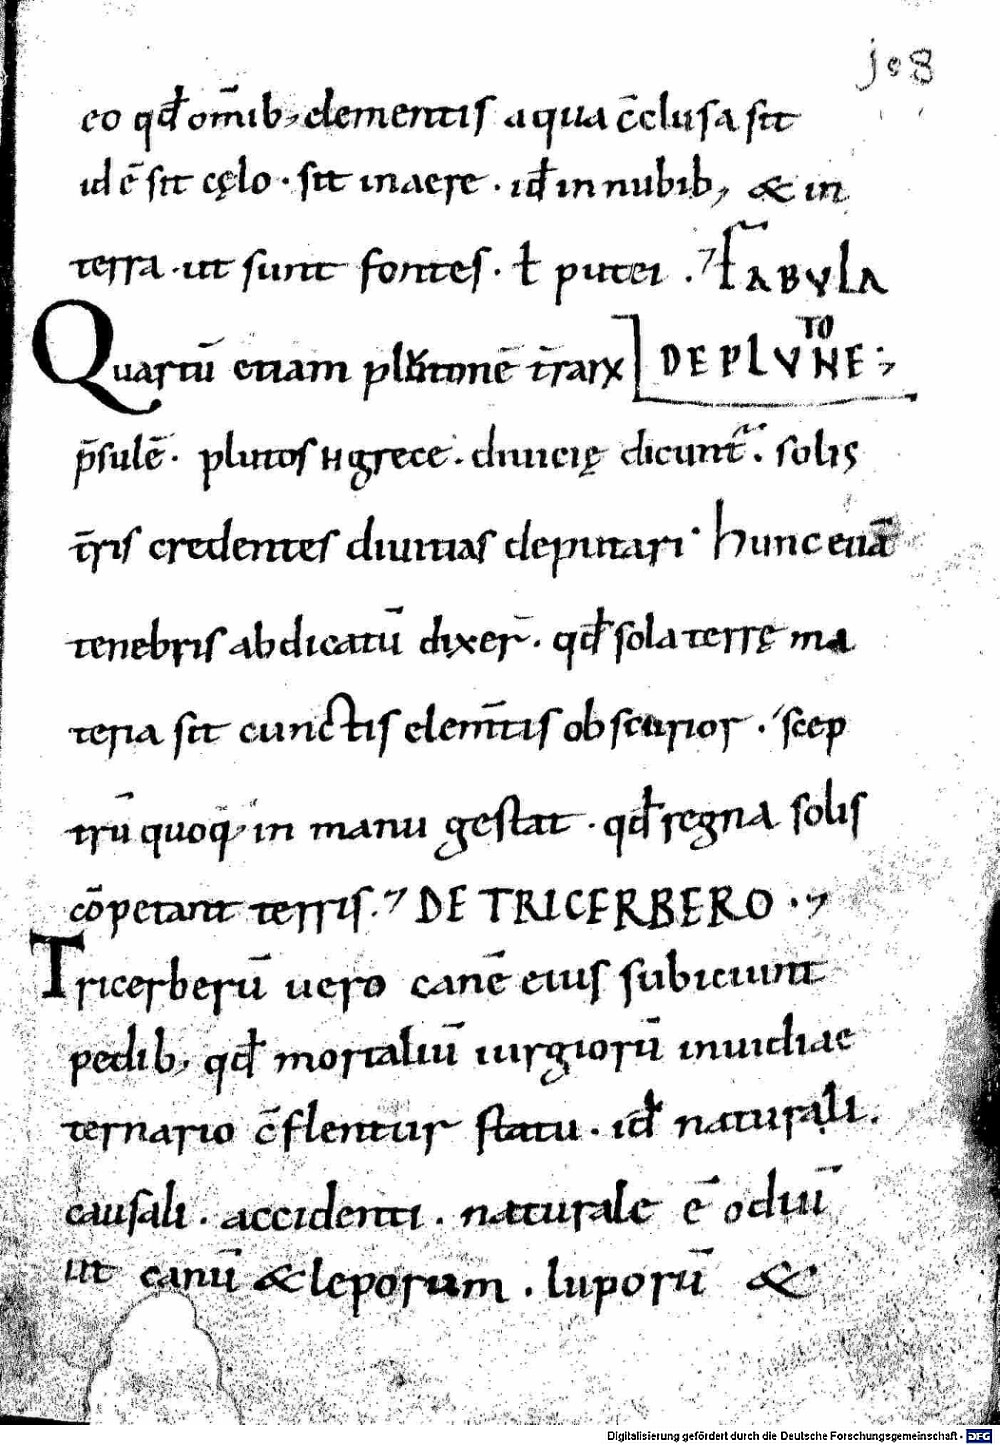 jo8
eo qđ om̄ib; elementis aqua c̄clusa sit
id ē sit cęlo · sit in aere · id̄ in nubib; & in
terra · ut sunt fontes · ł putei · FABVLA
Quartū etiam plutonē t̄rarx DE PLVTONE
p̄sulē · plutos H grece · diuicię dicunt᷑ · solis
t̄ris credentes diuitias deputari · hunc etiā
tenebris abdicatū dixer̄ · qđ sola terrę ma
teria sit cunctis elem̄tis obscurior · scep
trū quoq; in manu gestat · qđ regna solis
cōpetant terris · DE TRICERBERO ·
Tricerberū uero canē eius subiciunt
pedib; qđ mortaliū iurgiorū inuidiae
ternario c̄flentur statu · id̄ naturali ·
causali · accidenti · naturale ē odiū
ut canū & leporum · luporū &
Digitalisierung gefördert durch die Deutsche Forschungsgemeinschaft - DFG